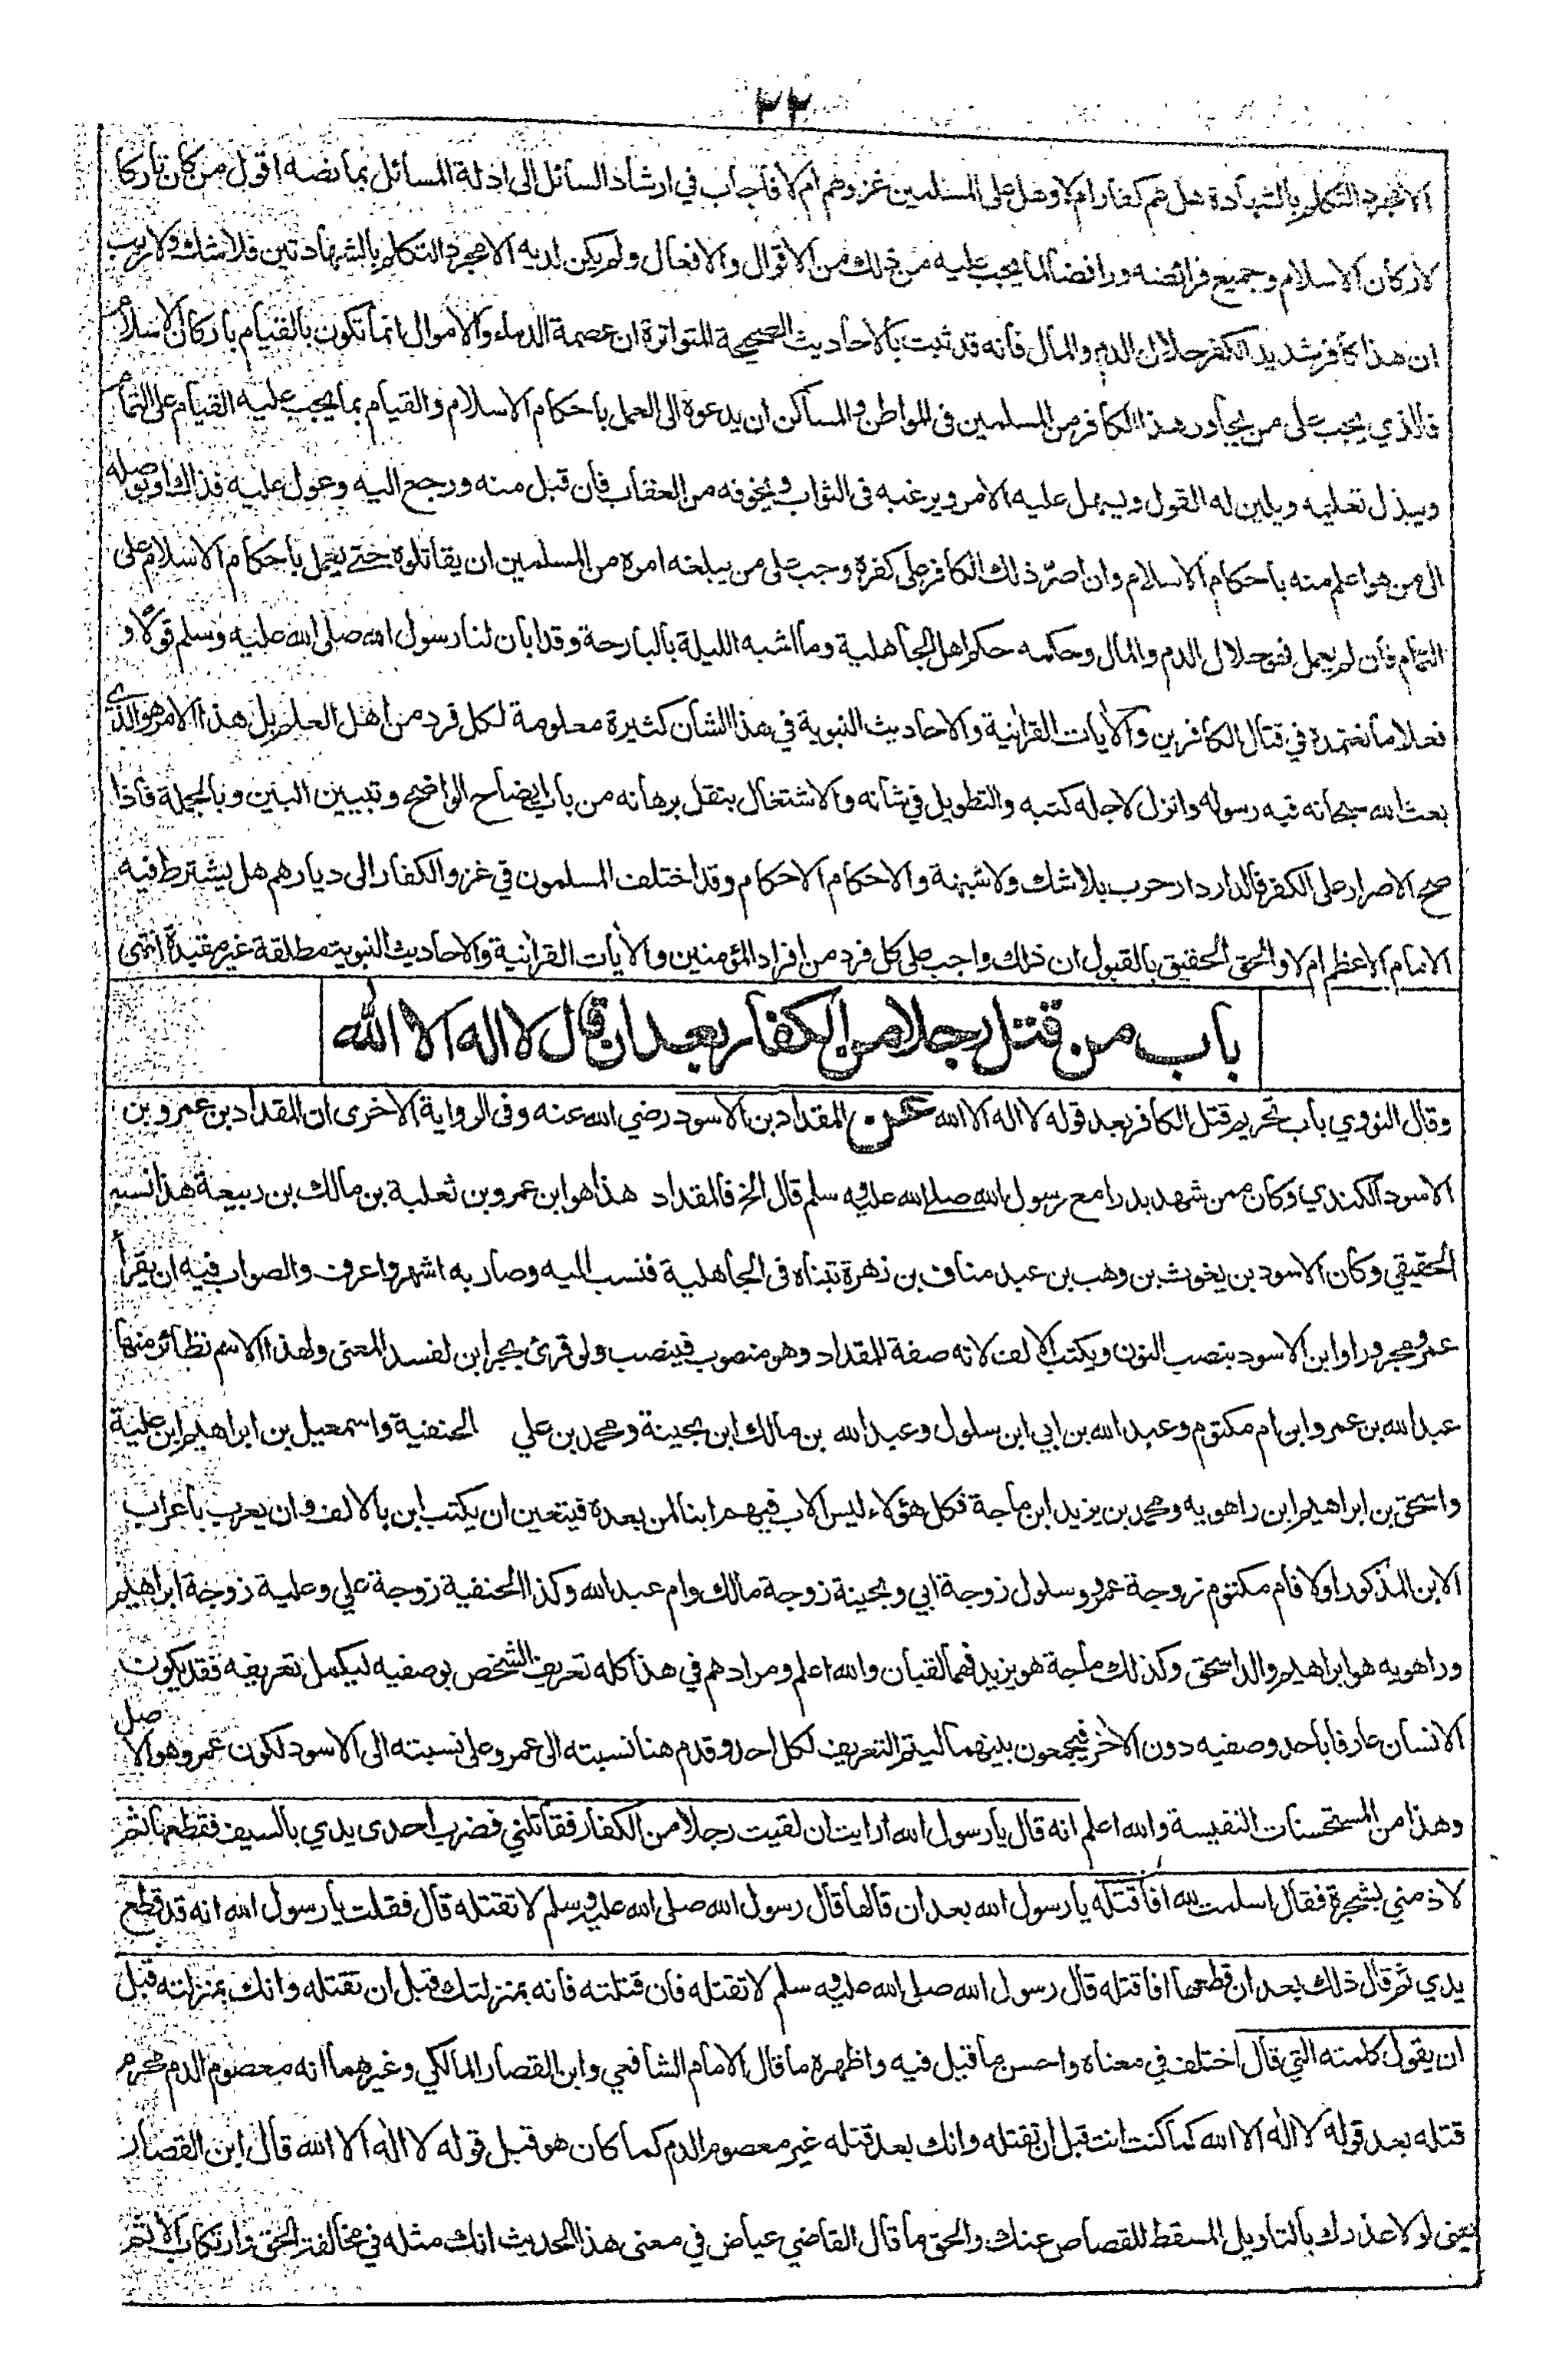 ٣٢
الا مجرد التكلم بالشهادة هل هم كفار ام لا وهل على المسلمين غزوهم ام لا فاجاب في ارشاد السائل الى ادلة المسائل بما نصه اقول من كان تاركا
لاركان الاسلام وجميع فرائضه ورافضا لما يجب عليه من ذلك من الاقوال والافعال ولم يكن لديه الا مجرد التكلم بالشهادتين فلا شك ولا ريب
ان هذا كافر شديد الكفر حلال الدم والمال فانه قد ثبت بالاحاديث الصحيحة المتواترة ان عصمة الدماء والاموال انما تكون بالقيام باركان الاسلام
فالذي يجب على من يجاور هذا الكافر من المسلمين في المواطن والمساكن ان يدعوه الى العمل باحكام الاسلام والقيام بما يجب عليه القيام على التمام
ويبذل تعليمه ويلين له القول ويسهل عليه الامر ويرغبه في الثواب ويخوفه من العقاب فان قبل منه ورجع اليه وعول عليه فذاك او يوصله
الى من هو اعلم منه باحكام الاسلام وان اصر ذلك الكافر على كفره وجب على من يبلغه امره من المسلمين ان يقاتلوه حتى يعمل باحكام الاسلام على
التمام فان لم يعمل فهو حلال الدم والمال وحكمه حكم اهل الجاهلية وما اشبه الليلة بالبارحة وقد ابان لنا رسول الله صلى الله عليه وسلم قولًا و
فعلا ما نعتمده في قتال الكافرين والآيات القرانية والاحاديث النبوية في هذا الشان كثيرة معلومة لكل فرد من اهل العلم بل هذا الامر هو الذي
بعث الله سبحانه فيه رسوله وانزل لاجله كتبه والتطويل في شانه والاشتغال بنقل برهانه من باب ايضاح الواضح وتبيين البين وبالجملة فاذا
صح الاصرار على الكفر فالدار دار حرب بلا شك ولا شبهة والاحكام الاحكام وقد اختلف المسلمون في غزو الكفار الى ديارهم هل يشترط فيه
الامام الاعظم ام لا والحق الحقيق بالقبول ان ذلك واجب على كل فرد من افراد المؤمنين والآيات القرانية والاحاديث النبوية مطلقة غير مقيدة انتهى
باب من قتل رجلا من الكفار بعد ان قال لا اله الا الله
وقال النووي باب تحريم قتل الكافر بعد قوله لا اله الا الله عن المقداد بن الاسود رضي الله عنه وفى الرواية الاخرى ان المقداد بن عمرو بن
الاسود الكندي وكان ممن شهد بدرا مع رسول الله صلى الله عليه وسلم قال الخ فالمقداد هذا هو ابن عمرو بن ثعلبة بن مالك بن ربيعة هذا نسبه
الحقيقي وكان الاسود بن يغوث بن وهب بن عبد مناف بن زهرة تبناه فى الجاهلية فنسب اليه وصار به اشهر واعرف والصواب فيه ان يقرأ
عمرو مجرورا وابن الاسود بنصب النون ويكتب بالالف لانه صفة للمقداد وهو منصوب فينصب ولو قرئ بجر ابن لفسد المعنى ولهذا الاسم نظائر منها
عبد الله بن عمرو ابن ام مكتوم وعبد الله بن ابي ابن سلول وعبد الله بن مالك ابن بحينة ومحمد بن علي الحنفية واسمعيل بن ابراهيم ابن علية
واسحق بن ابراهيم ابن راهويه ومحمد بن يزيد ابن ماجة فكل هؤلاء ليس الاب فيهم ابنا لمن بعده فيتعين ان يكتب ابن بالالف وان يعرب باعراب
الابن المذكور اولا فام مكتوم زوجة عمرو وسلول زوجة ابي وبحينة زوجة مالك وام عبد الله وكذا الحنفية زوجة علي وعلية زوجة ابراهيم
وراهويه هو ابراهيم والد اسحق وكذلك ماجة هو يزيد فهما لقبان والله اعلم ومرادهم في هذا كله تعريف الشخص بوصفيه ليكمل تعريفه فقد يكون
الانسان عارفا باحد وصفيه دون الآخر فيجمعون بينهما ليتم التعريف لكل احد وقدم هنا نسبته الى عمرو على نسبته الى الاسود لكون عمرو هو الاصل
وهذا من المستحسنات النفيسة والله اعلم انه قال يا رسول الله ارايت ان لقيت رجلا من الكفار فقاتلني فضرب احدى يدي بالسيف فقطعها ثم
لاذ مني بشجرة فقال اسلمت لله افاقتله يا رسول الله بعد ان قالها قال رسول الله صلى الله عليه وسلم لا تقتله قال فقلت يا رسول الله انه قد قطع
يدي ثم قال ذلك بعد ان قطعها افاقتله قال رسول الله صلى الله عليه وسلم لا تقتله فان قتلته فانه بمنزلتك قبل ان تقتله وانك بمنزلته قبل
ان يقول كلمته التي قال اختلف في معناه واحسن ما قيل فيه واظهره ما قال الامام الشافعي وابن القصار المالكي وغيرهما انه معصوم الدم محرم
قتله بعد قوله لا اله الا الله كما كنت انت قبل ان تقتله وانك بعد قتله غير معصوم الدم كما كان هو قبل قوله لا اله الا الله قال ابن القصار
يعنى لولا عذرك بالتاويل المسقط للقصاص عنك والحق ما قال القاضي عياض في معنى هذا الحديث انك مثله في مخالفة الحق وارتكاب الاثم